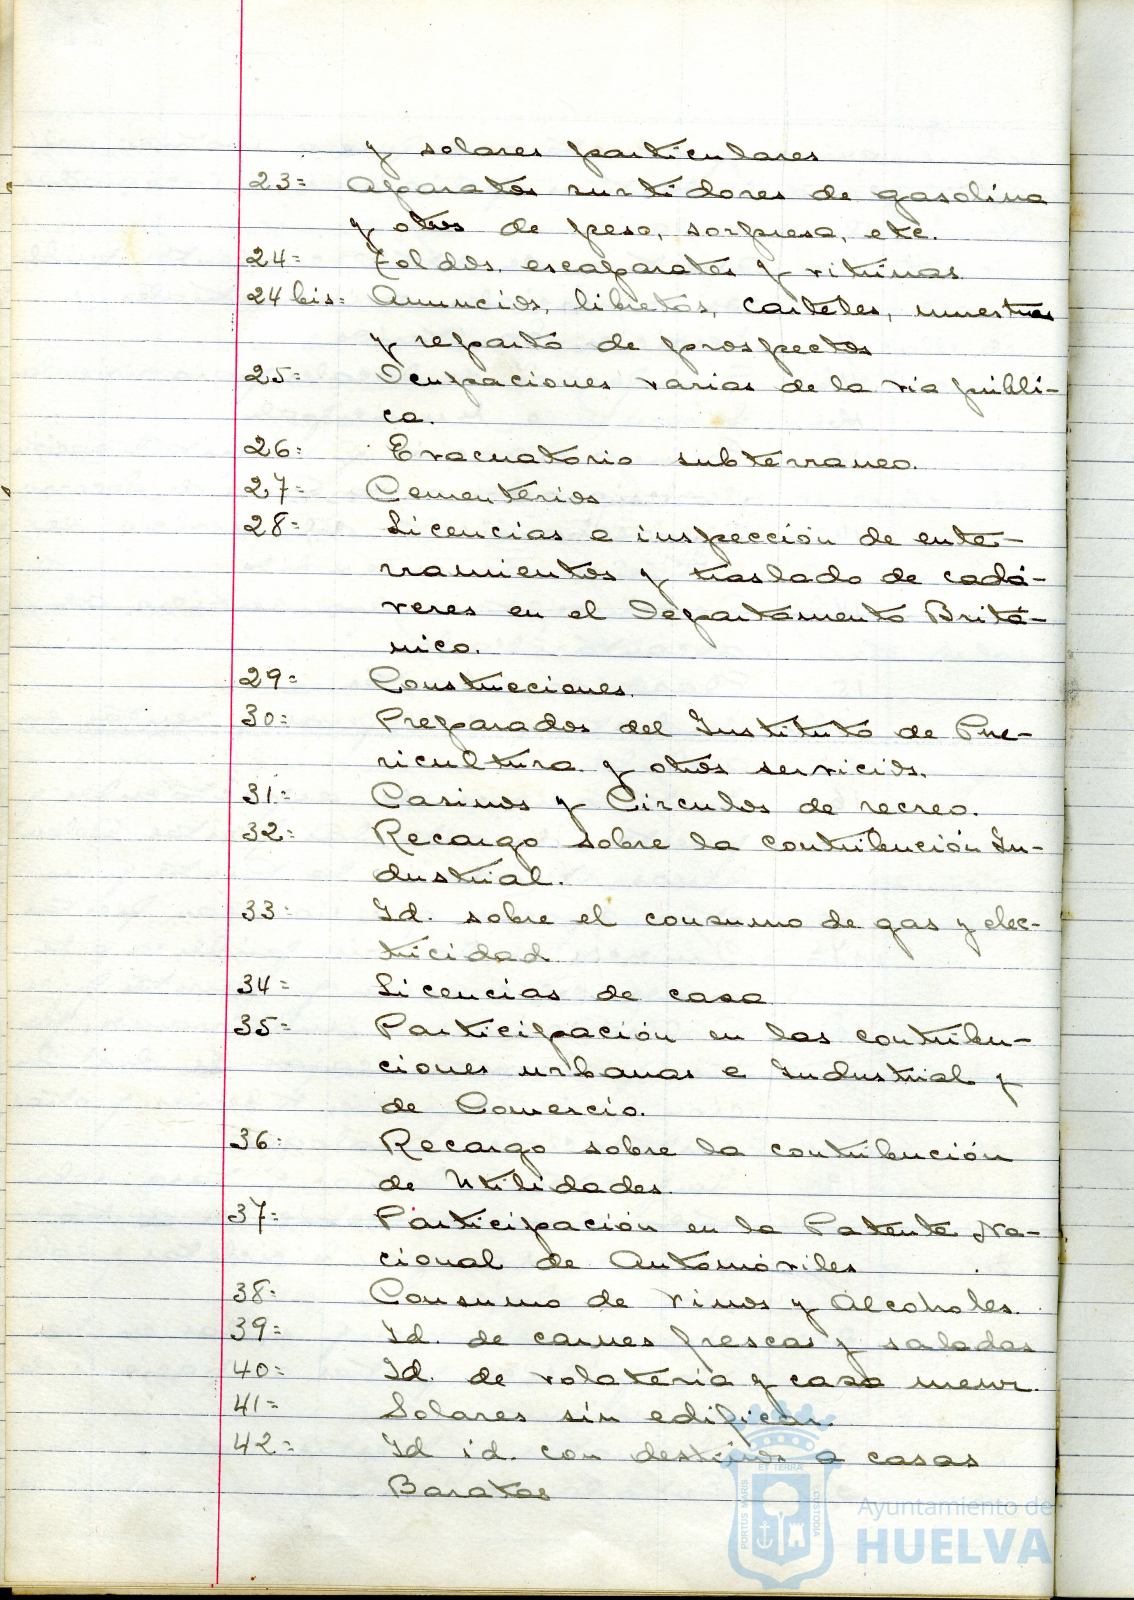 y solares particulares
23= Aparatos surtidores de gasolina
y otros de peso, sorpresa, etc.
24= Toldos, escaparates y vitrinas
24 bis= Anuncios, libretos, carteles, muestras
y reparto de prospectos
25= Ocupaciones varias de la via públi-
ca.
26= Evacuatorio subterraneo.
27= Cementerios
28= Licencias e inspección de ente-
rramientos y traslado de cadá-
veres en el Departamento Britá-
nico.
29= Construcciones.
30= Preparados del Instituto de Pue-
ricultura y otros servicios.
31= Casinos y Circulos de recreo.
32= Recargo sobre la contribución In-
dustrial.
33= Id. sobre el consumo de gas y elec-
tricidad
34= Licencias de casa
35= Participación en las contribu-
ciones urbanas e Industrial y
de Comercio.
36= Recargo sobre la contribución
de Utilidades.
37= Participación en la Patente Na-
cional de Automóviles
38= Consumo de vinos y Alcoholes.
39= Id. de carnes frescas y saladas
40= Id. de volateria y casa menor.
41= Solares sin edificar.
42= Id id. con destinos a casas
Baratas
PORTUS MARIS
ET TERRÆ
CUSTODIA
Ayuntamiento de
HUELVA